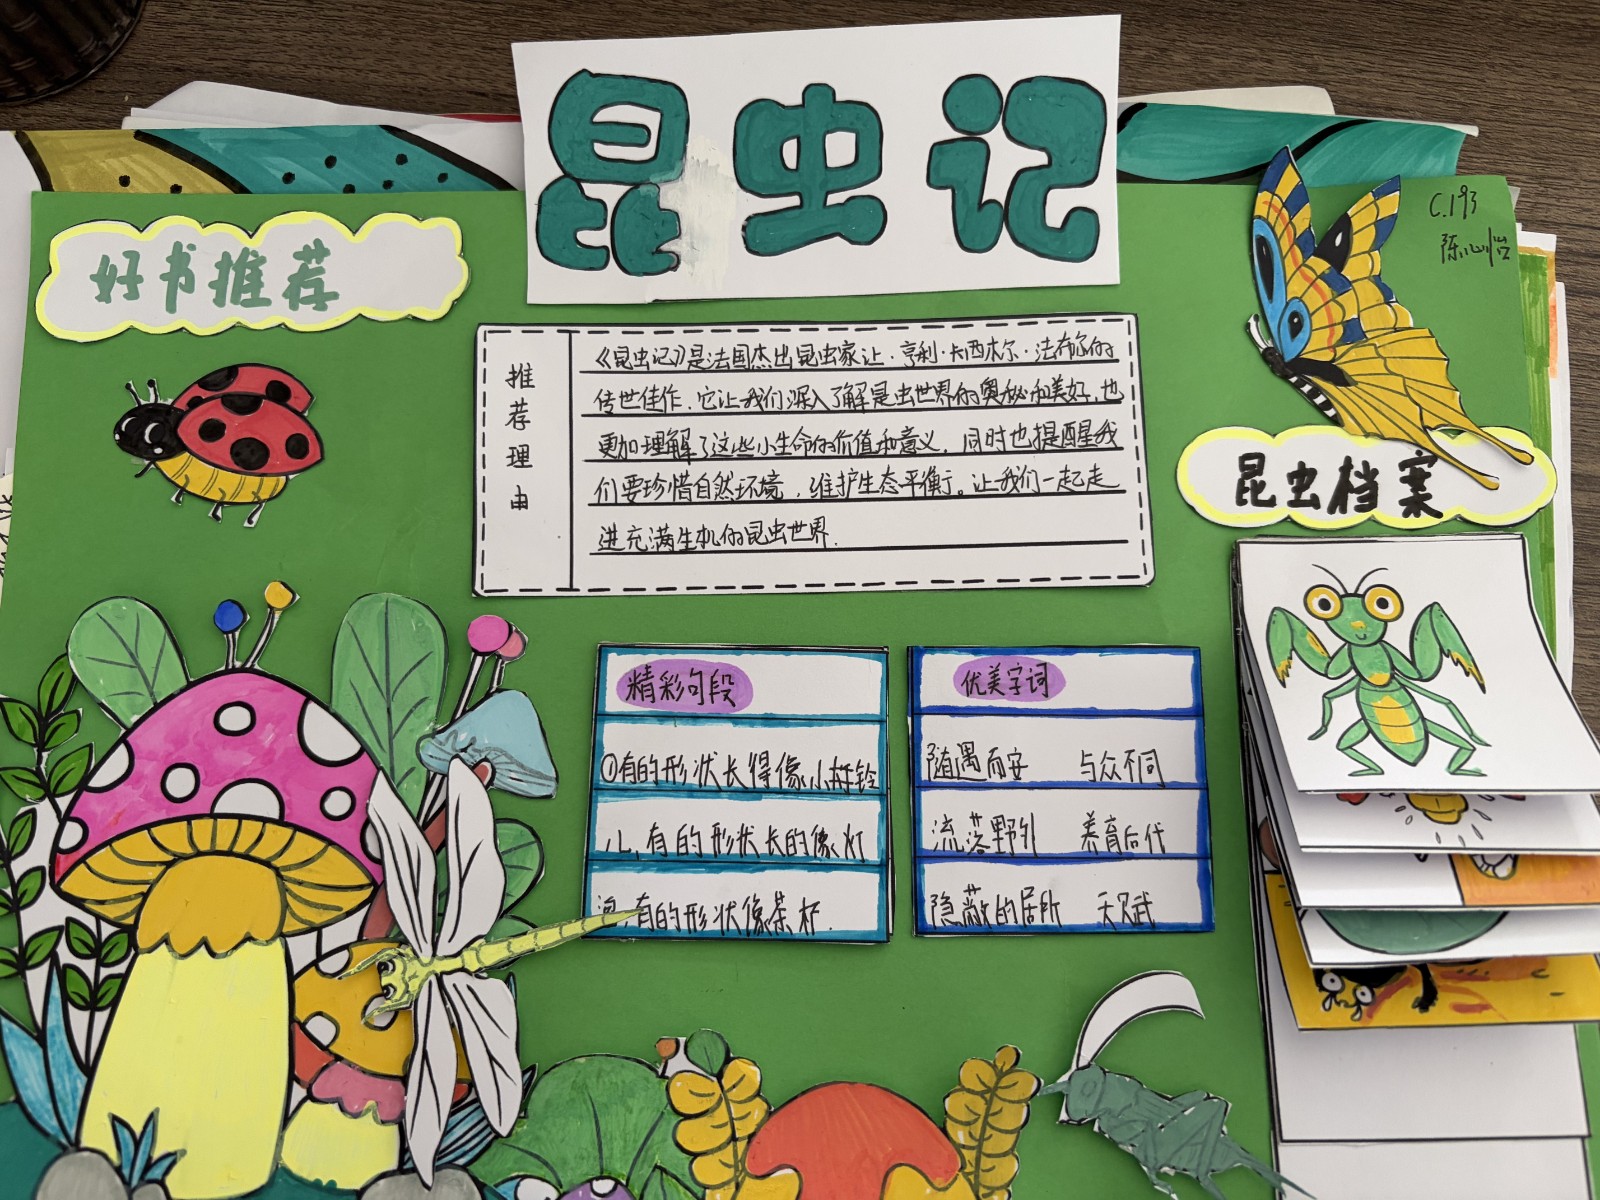 昆虫记
C.193
陈心怡
好书推荐
推荐理由
《昆虫记》是法国杰出昆虫家让·亨利·卡西米尔·法布尔的
传世佳作，它让我们深入了解昆虫世界的奥秘和美好，也
更加理解了这些小生命的价值和意义，同时也提醒我
们要珍惜自然环境，维护生态平衡。让我们一起走
进充满生机的昆虫世界.
昆虫档案
精彩句段
①有的形状长得像小
儿,有的形状长的像灯
有的形状像茶杯.
优美字词
随遇而安 与众不同
流落野外 养育后代
隐蔽的居所 天赋